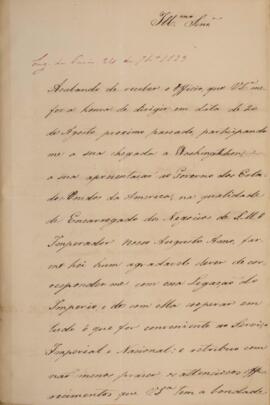 Ill.mo Senr.
Acabando de receber o Officio, que V S.ª me
fez a honra de dirigir em data de 20
de Agosto proximo passado, participando
me a sua chegada a Washington e
a sua apresentaçaõ ao Governo dos Esta
dos Unidos da America, na qualidade
de Encarregado dos Negocios de S. M. O
Imperador Nosso Augusto Amo, far
me hei hum agradavel dever de cor
responder me com essa Legaçaõ do
Imperio, e de com ella cooperar em
tudo o que for conveniente ao Serviço
Imperial e Nacional; e retribuo com
naõ menos prazer os attenciosos offe
recimentos que V S.ª tem a bondade